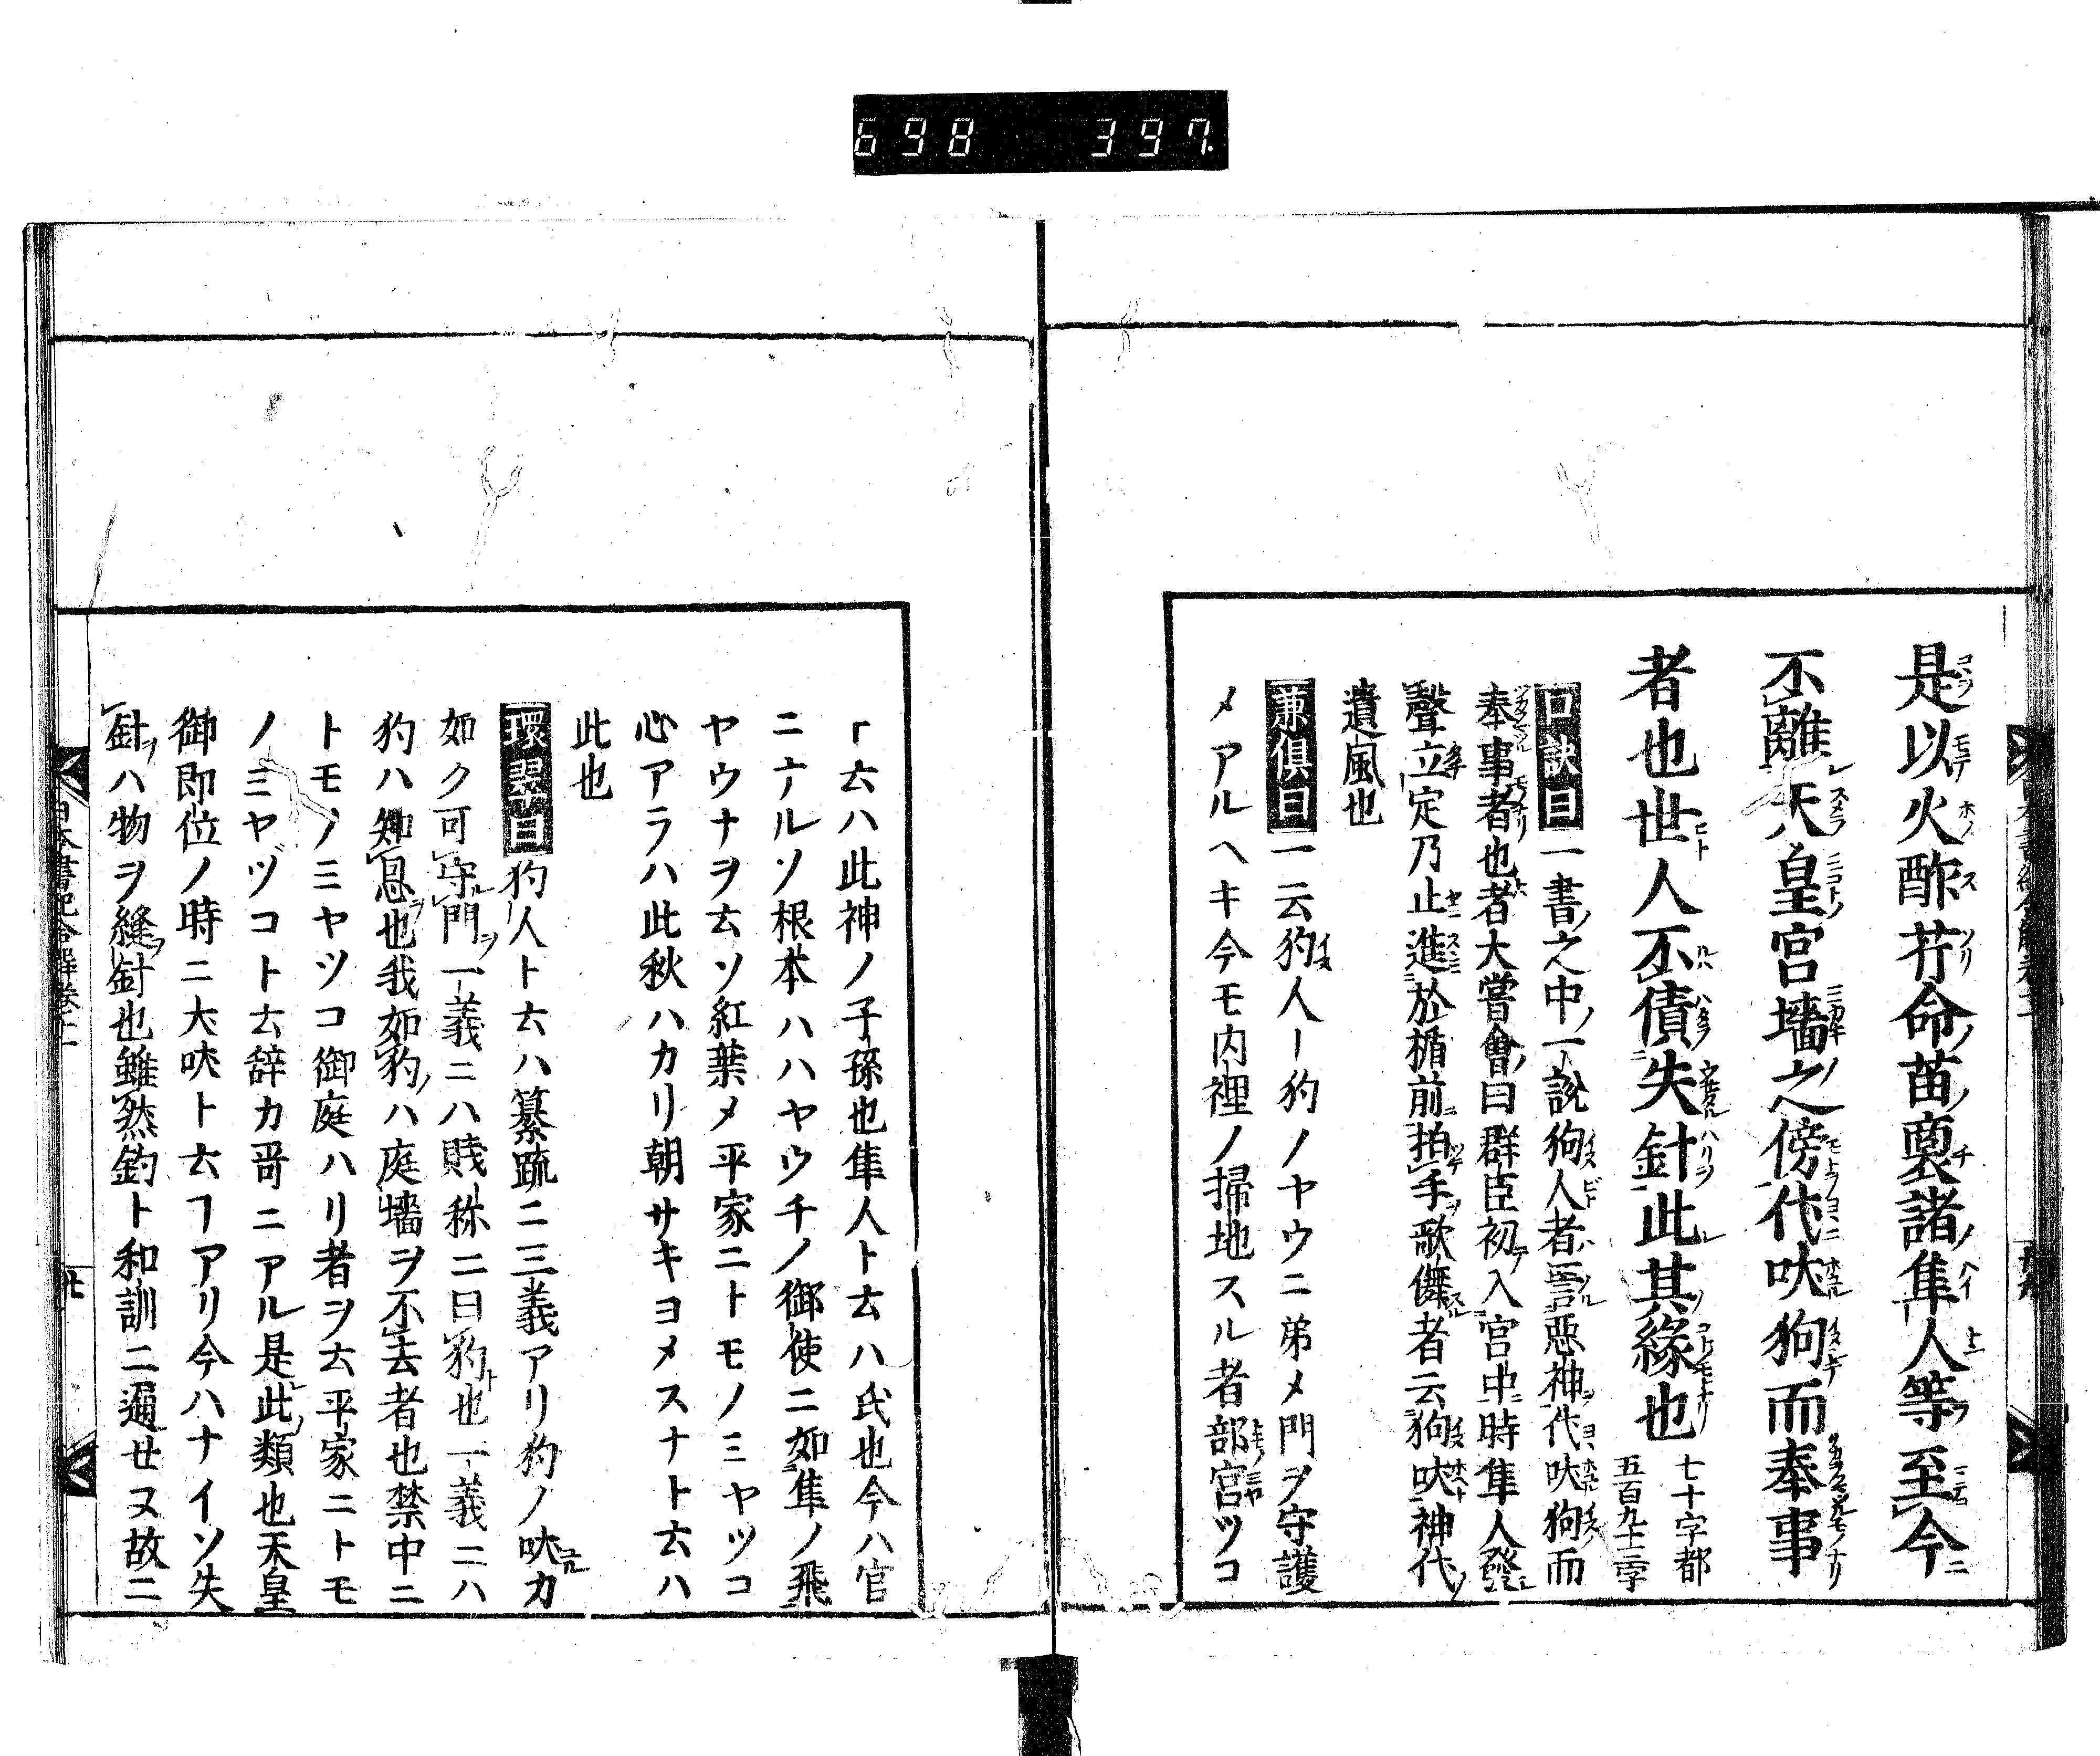 698 397
是以火酢芹命苗裔諸隼人等至今
不離天皇宮墻之傍代吠狗而奉事
者也世人不債失針此其緣也
七十字都
五百九十二字
口訣曰一書之中一說狗人者詈惡神代吠狗而
奉事者也者大嘗會曰群臣初入宮中時隼人發
聲立定乃止進於楯前拍手歌儛者云狗吠神代
遺風也
兼俱曰一云狗人ー狗ノヤウニ弟メ門ヲ守護
メアルヘキ今モ内裡ノ掃地スル者部宮ツコ
ㄏ云ハ此神ノ子孫也隼人ト云ハ氏也今ハ官
ニナルソ根本ハハヤウチノ御使ニ如隼ノ飛
ヤウナヲ云ソ紅葉メ平家ニトモノミヤツコ
心アラハ此秋ハカリ朝サキヨメスナト云ハ
此也
環翠曰狗人ト云ハ纂疏ニ三義アリ狗ノ吠カ
如ク可守門一義ニハ賎称ニ曰狗也一義ニハ
狗ハ知恩也我如狗ハ庭墻ヲ不去者也禁中ニ
トモノミヤツコ御庭ハリ者ヲ云平家ニトモ
ノミヤヅコト云辞カ哥ニアル是此類也天皇
御即位ノ時ニ大吠ト云ヿアリ今ハナイソ失
針ハ物ヲ縫針也雖然釣ト和訓ニ通セヌ故ニ
日本書紀合解卷十一
廿